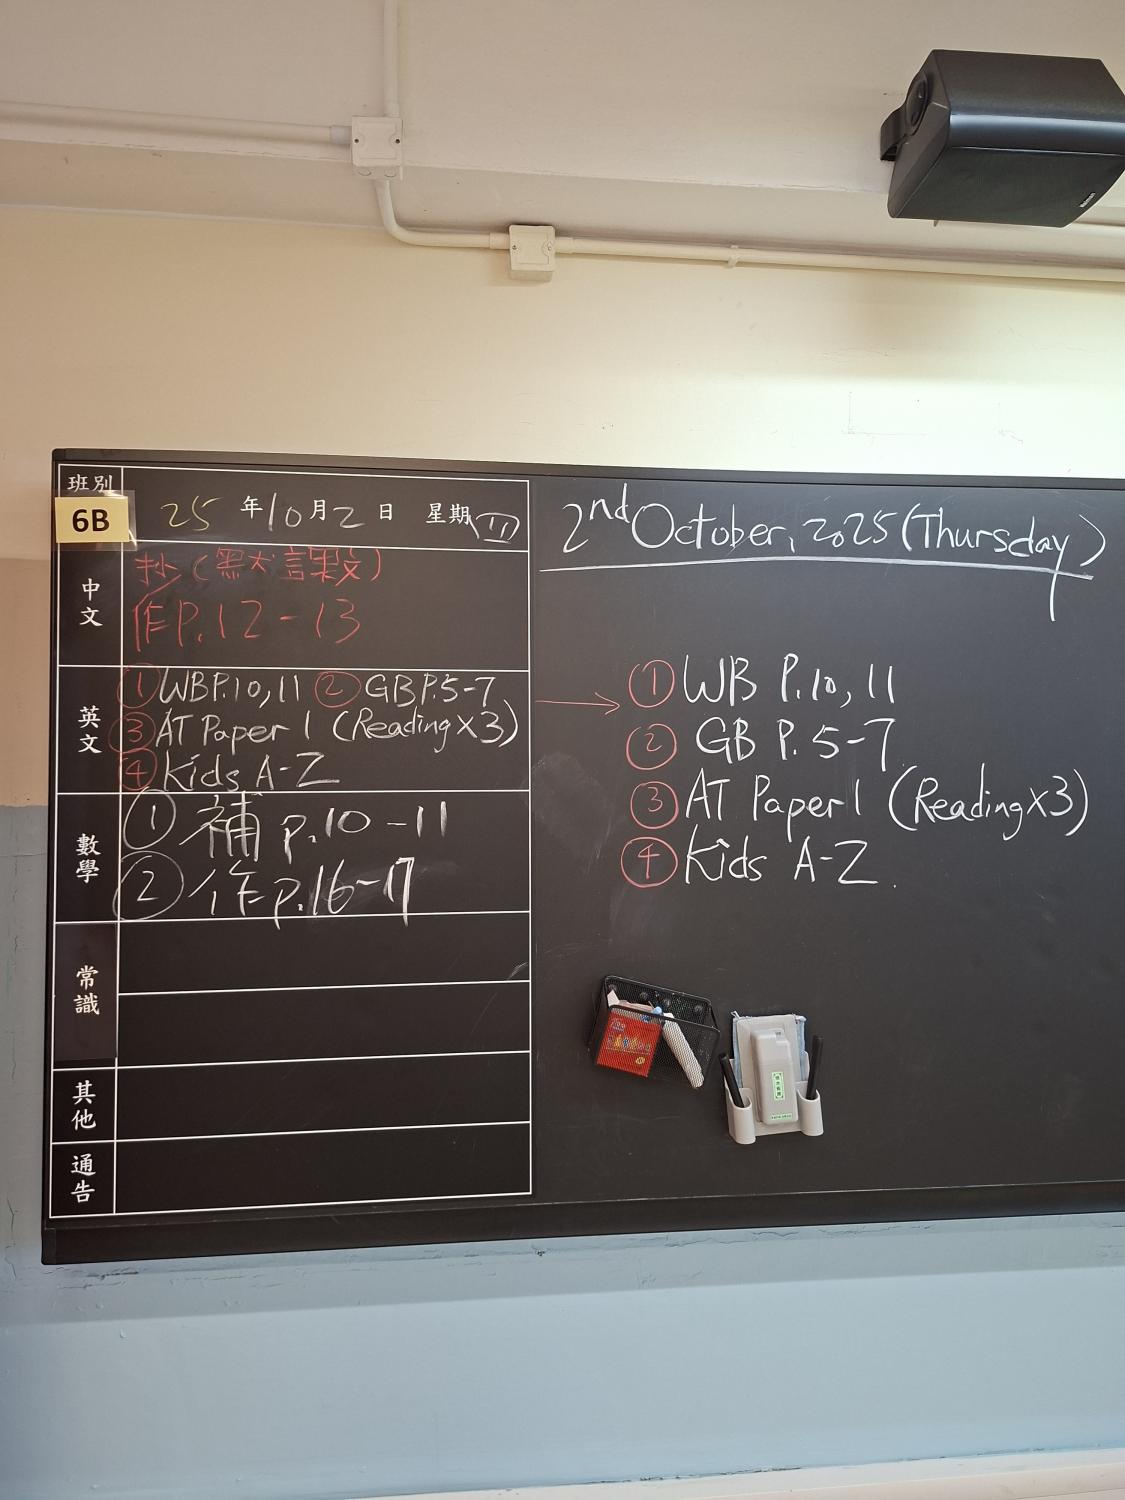 班別
6B
25年10月2日 星期四
中文
抄(黑犬課文)
作P.12-13
英文
①WBP.10,11 ②GBP.5-7
③AT Paper 1 (Reading×3)
④Kids A-Z
數學
① 補 p.10-11
② 作p.16-17
常識
其他
通告
2nd October, 2025 (Thursday)
① WB P.10, 11
② GB P. 5-7
③ AT Paper 1 (Reading×3)
④ Kids A-Z